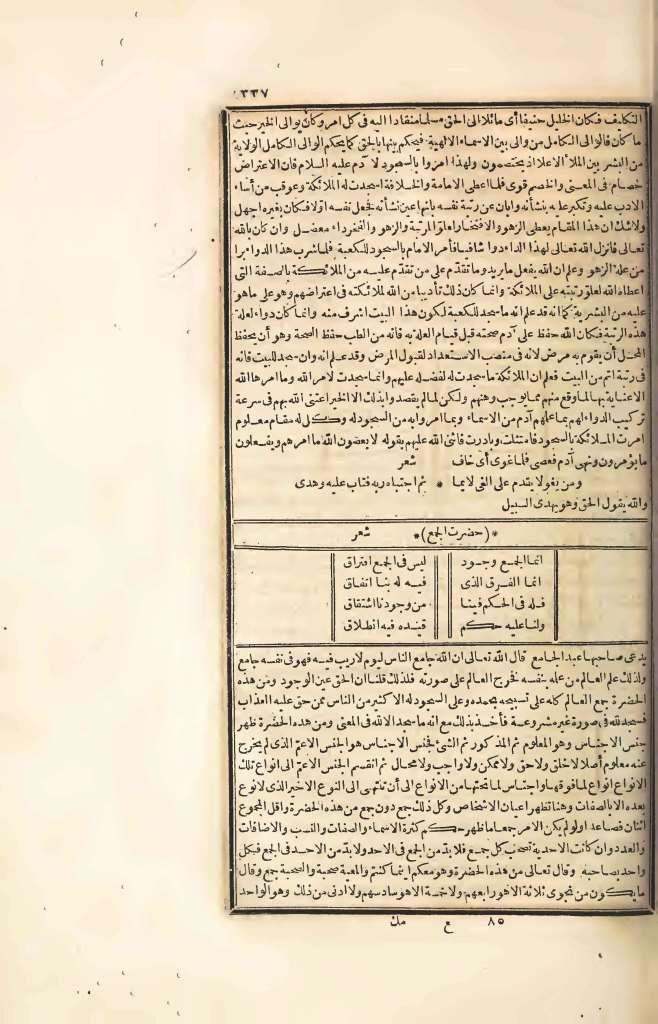 ٣٣٧
التكليف فكان الخليل حنيفا أى مائلا الى الحق مسلما منقادا اليه فى كل امر وكان يوالى الخير حيث
ما كان فالوالى الكامل من والى بين الاسماء الالهية فيحكم بينها بالحق كما يحكم الوالى الكامل الولاية
من البشر بين الملأ الاعلا اذ يختصمون ولهذا امروا بالسجود لآدم عليه السلام فان الاعتراض
خصام فى المعنى والخصم قوى فلما اعطى الامامة والخلافة اسجدت له الملائكة وعوقب من أساء
الادب عليه وتكبر عليه بنشأته وابان عن رتبة نفسه بانها عين نشأته فجهل نفسه اولا فكان بغيره اجهل
ولاشك ان هذا المقام يعطى الزهو والافتخار لعلو المرتبة والزهو والفخر داء معضل وان كان بالله
تعالى فانزل الله تعالى لهذا الداء دواء شافيا فأمر الامام بالسجود للكعبة فلما شرب هذا الدواء برا
من علة الزهو وعلم ان الله يفعل ما يريد وما تقدم على من تقدم عليه من الملائكة بالصفة التى
اعطاه الله لعلو رتبته على الملائكة وانما كان ذلك تأديبا من الله لملائكته فى اعتراضهم وهو على ما هو
عليه من البشرية كما انه قد علم انه ما سجد للكعبة لكون هذا البيت اشرف منه وانما كان دواء لعلة
هذه الرتبة فكان الله حفظ على آدم صحته قبل قيام العلة به فانه من الطب حفظ الصحة وهو أن يحفظ
المحل أن يقوم به مرض لانه فى منصب الاستعداد لقبول المرض وقد علم انه وان سجد للبيت فانه
فى رتبة اتم من البيت فعلم ان الملائكة ما سجدت له لفضله عليهم وانما سجدت لامر الله وما امرها الله
الا عناية بها لما وقع منهم مما يوجب وهنهم ولكن لما لم يقصدوا بذلك الا الخير اعتنى الله بهم فى سرعة
تركيب الدواء لهم بما علمهم آدم من الاسماء وبما امروا به من السجود له وكل له مقام معلوم
امرت الملائكة بالسجود فامتثلت وبادرت فاثنى الله عليهم بقوله لا يعصون الله ما امرهم ويفعلون
ما يؤمرون ونهى آدم فعصى فلما غوى أى خاف شعر
ومن يغو لا يعدم على الغى لائما * ثم اجتباه ربه فتاب عليه وهدى
والله يقول الحق وهو يهدى السبيل
*(حضرت الجمع)* شعر
انما الجمع وجود ليس فى الجمع افتراق
انما الفرق الذى فيه له بنا اتفاق
فله فى الحكم فينا من وجودنا اشتقاق
ولنا عليه حكم قيده فيه انطلاق
يدعى صاحبها عبد الجامع قال الله تعالى ان الله جامع الناس ليوم لا ريب فيه فهو فى نفسه جامع
ولذلك علم العالم من علمه بنفسه فخرج العالم على صورته فلذلك قلنا ان الحق عين الوجود ومن هذه
الحضرة جمع العالم كله على تسبيحه بحمده وعلى السجود له الا كثير من الناس ممن حق عليه العذاب
فسجد لله فى صورة غير مشروعة فأخذ بذلك مع انه ما سجد الا لله فى المعنى ومن هذه الحضرة ظهر
جنس الاجناس وهو المعلوم ثم المذكور ثم الشئ فجنس الاجناس هو الجنس الاعم الذى لم يخرج
عنه معلوم أصلا لا خلق ولا حق ولا ممكن ولا واجب ولا محال ثم انقسم الجنس الاعم الى انواع تلك
الانواع انواع لما فوقها واجناس لما تحتها من الانواع الى أن تنتهى الى النوع الاخير الذى لا نوع
بعده الا بالصفات وهنا تظهر اعيان الاشخاص وكل ذلك جمع دون جمع من هذه الحضرة واقل المجموع
اثنان فصاعدا ولو لم يكن الامر جمعا ما ظهر حكم كثرة الاسماء والصفات والنسب والاضافات
والعدد وان كانت الاحدية تصحب كل جمع فلا بد من الجمع فى الاحد ولا بد من الاحد فى الجمع فكل
واحد بصاحبه وقال تعالى من هذه الحضرة وهو معكم اينما كنتم والمعية صحبة والصحبة جمع وقال
ما يكون من نجوى ثلاثة الا هو رابعهم ولا خمسة الا هو سادسهم ولا ادنى من ذلك وهو الواحد
٨٥ ع مك